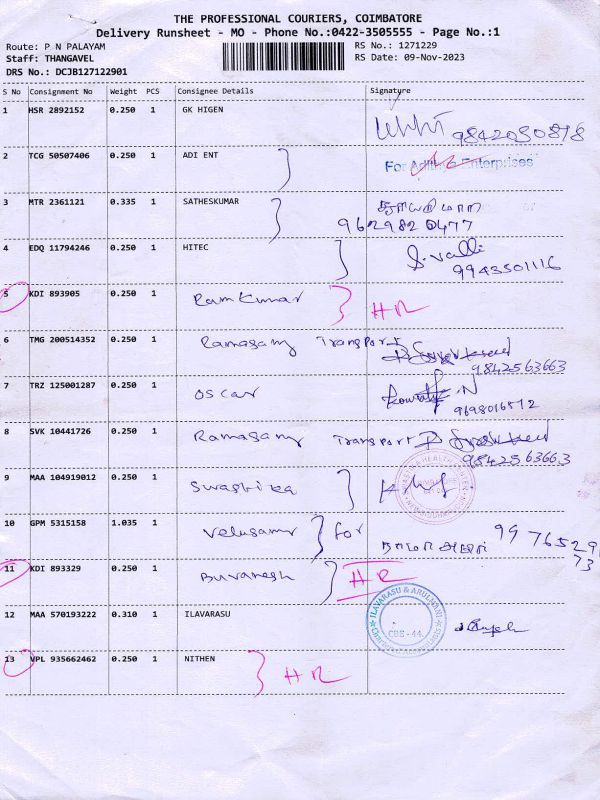 THE PROFESSIONAL COURIERS, COIMBATORE
Delivery Runsheet - MO - Phone No.:0422-3505555 - Page No.:1
Route: P N PALAYAM RS No.: 1271229
Staff: THANGAVEL RS Date: 09-Nov-2023
DRS No.: DCJB127122901
S No Consignment No Weight PCS Consignee Details Signature
1 HSR 2892152 0.250 1 GK HIGEN 9842030878
2 TCG 50507406 0.250 1 ADI ENT For Enterprises
3 MTR 2361121 0.335 1 SATHESKUMAR
9629820477
4 EDQ 11794246 0.250 1 HITEC S. Valli
9943501116
5 KDI 893905 0.250 1 Ramkumar HR
6 TMG 200514352 0.250 1 Ramasamy Transport
9842563663
7 TRZ 125001287 0.250 1 oscar
9698016572
8 SVK 10441726 0.250 1 Ramasamy Transport
9842563663
9 MAA 104919012 0.250 1 Swastika
10 GPM 5315158 1.035 1 Velusamy for 9976529
73
11 KDI 893329 0.250 1 Buvanesh HR
12 MAA 570193222 0.310 1 ILAVARASU
ILAVARASU & ARULMANI
Chartered Accountants
CBE - 44.
13 VPL 935662462 0.250 1 NITHEN HR